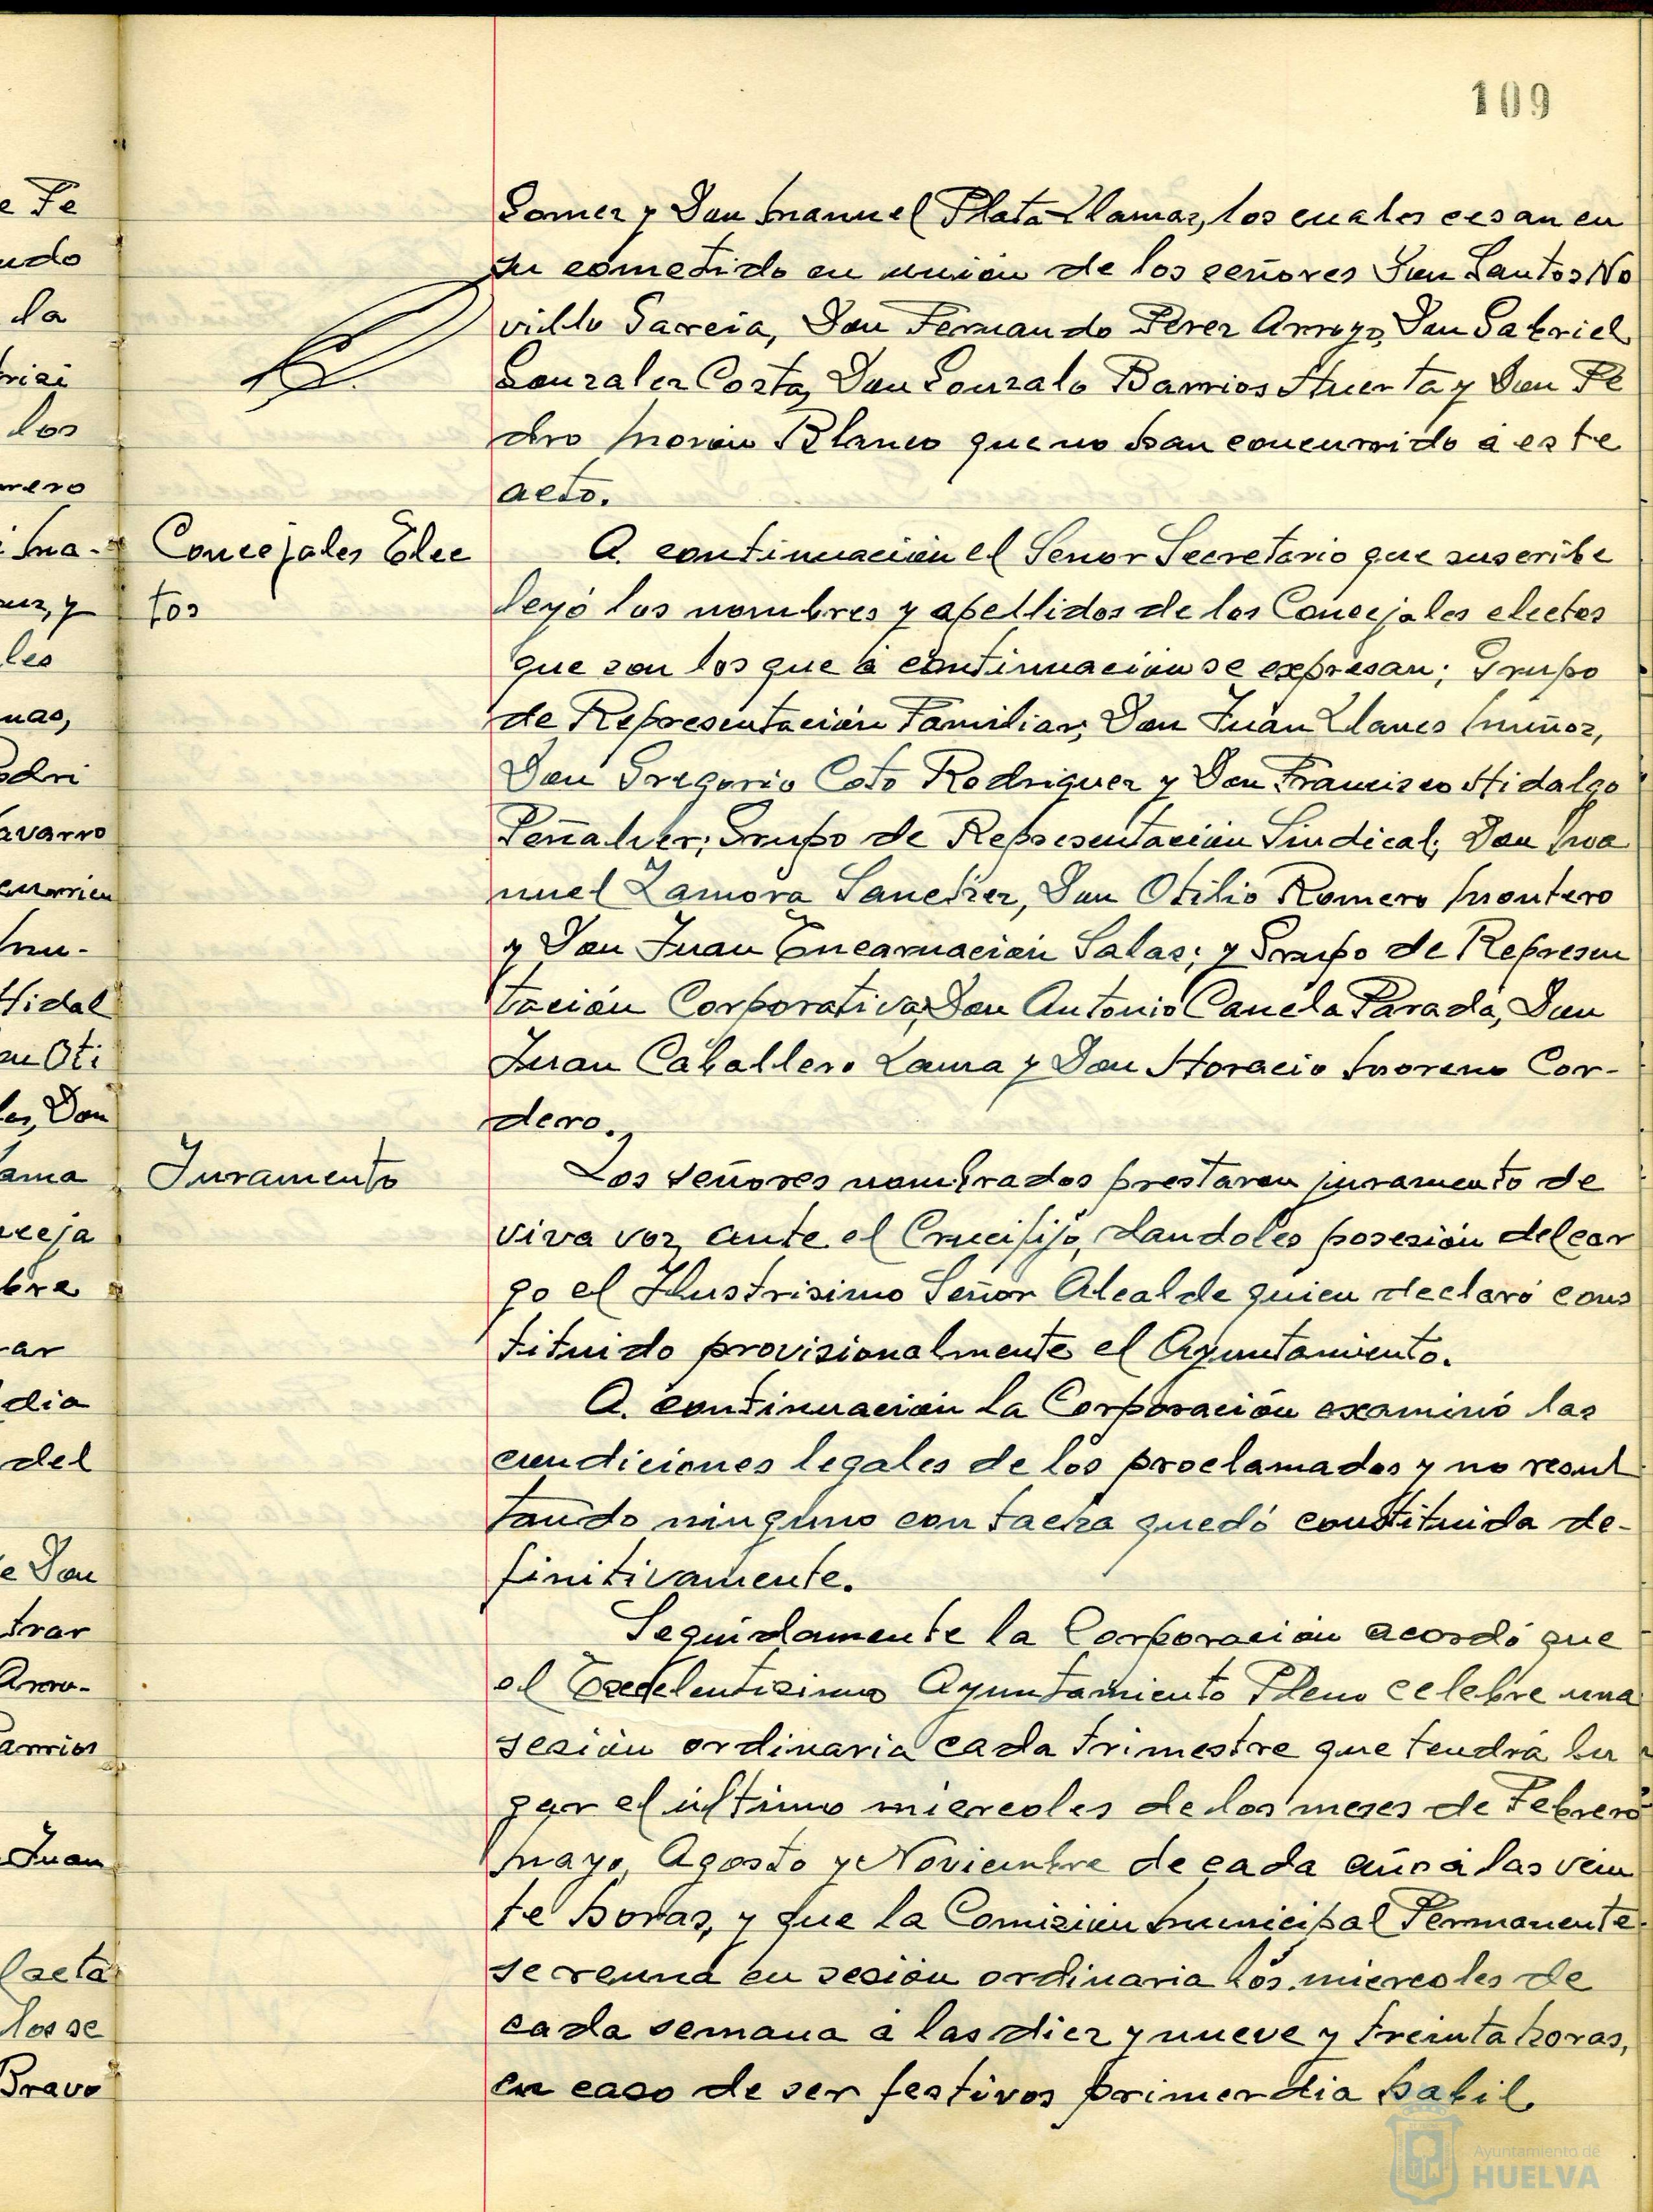 109
e Fe
udo
la
los
nero
ma-
uz, y
les
uas,
odri
avarro
mu-
Hidal
an Oti
les, Don
ama
nceja
bre
ar
dia
del
e Don
trar
Arro-
arrios
Juan
los se
Bravo
Gomez y Don Manuel Plata Llamas, los cuales cesan en
su cometido en union de los señores Don Santos No
villo Garcia, Don Fernando Perez Arroyo, Don Gabriel
Gonzalez Costa, Don Gonzalo Barrios Huerta y Don Pe
dro Morón Blanco que no han concurrido á este
acto.
Concejales Elec
tos
A continuación el Señor Secretario que suscribe
leyó los nombres y apellidos de los Concejales electos
que son los que á continuacion se expresan; Grupo
de Representación Familiar, Don Juan Llanes Muñoz,
Don Gregorio Coto Rodriguez y Don Francisco Hidalgo
Peñalver; Grupo de Representación Sindical; Don Ma
nuel Zamora Sanchez, Don Otilio Romero Montero
y Don Juan Encarnación Salas; y Grupo de Represen
tación Corporativa, Don Antonio Canela Parada, Don
Juan Caballero Lama y Don Horacio Moreno Cor-
dero.
Juramento
Los señores nombrados prestaron juramento de
viva voz ante el Crucifijo, dandoles posesión del car
go el Ilustrisimo Señor Alcalde quien declaró cons
tituido provisionalmente el Ayuntamiento.
A continuación la Corporación examinó las
condiciones legales de los proclamados y no resul
tando ninguno con tacha quedó constituida de-
finitivamente.
Seguidamente la Corporación acordó que
el Excelentisimo Ayuntamiento Pleno celebre una
sesión ordinaria cada trimestre que tendrá lu
gar el último miercoles de los meses de Febrero
Mayo, Agosto y Noviembre de cada año á las vein
te horas, y que la Comision Municipal Permanente
se reuna en sesión ordinaria los miercoles de
cada semana á las diez y nueve y treinta horas,
en caso de ser festivos primer dia habil.
Ayuntamiento de
HUELVA